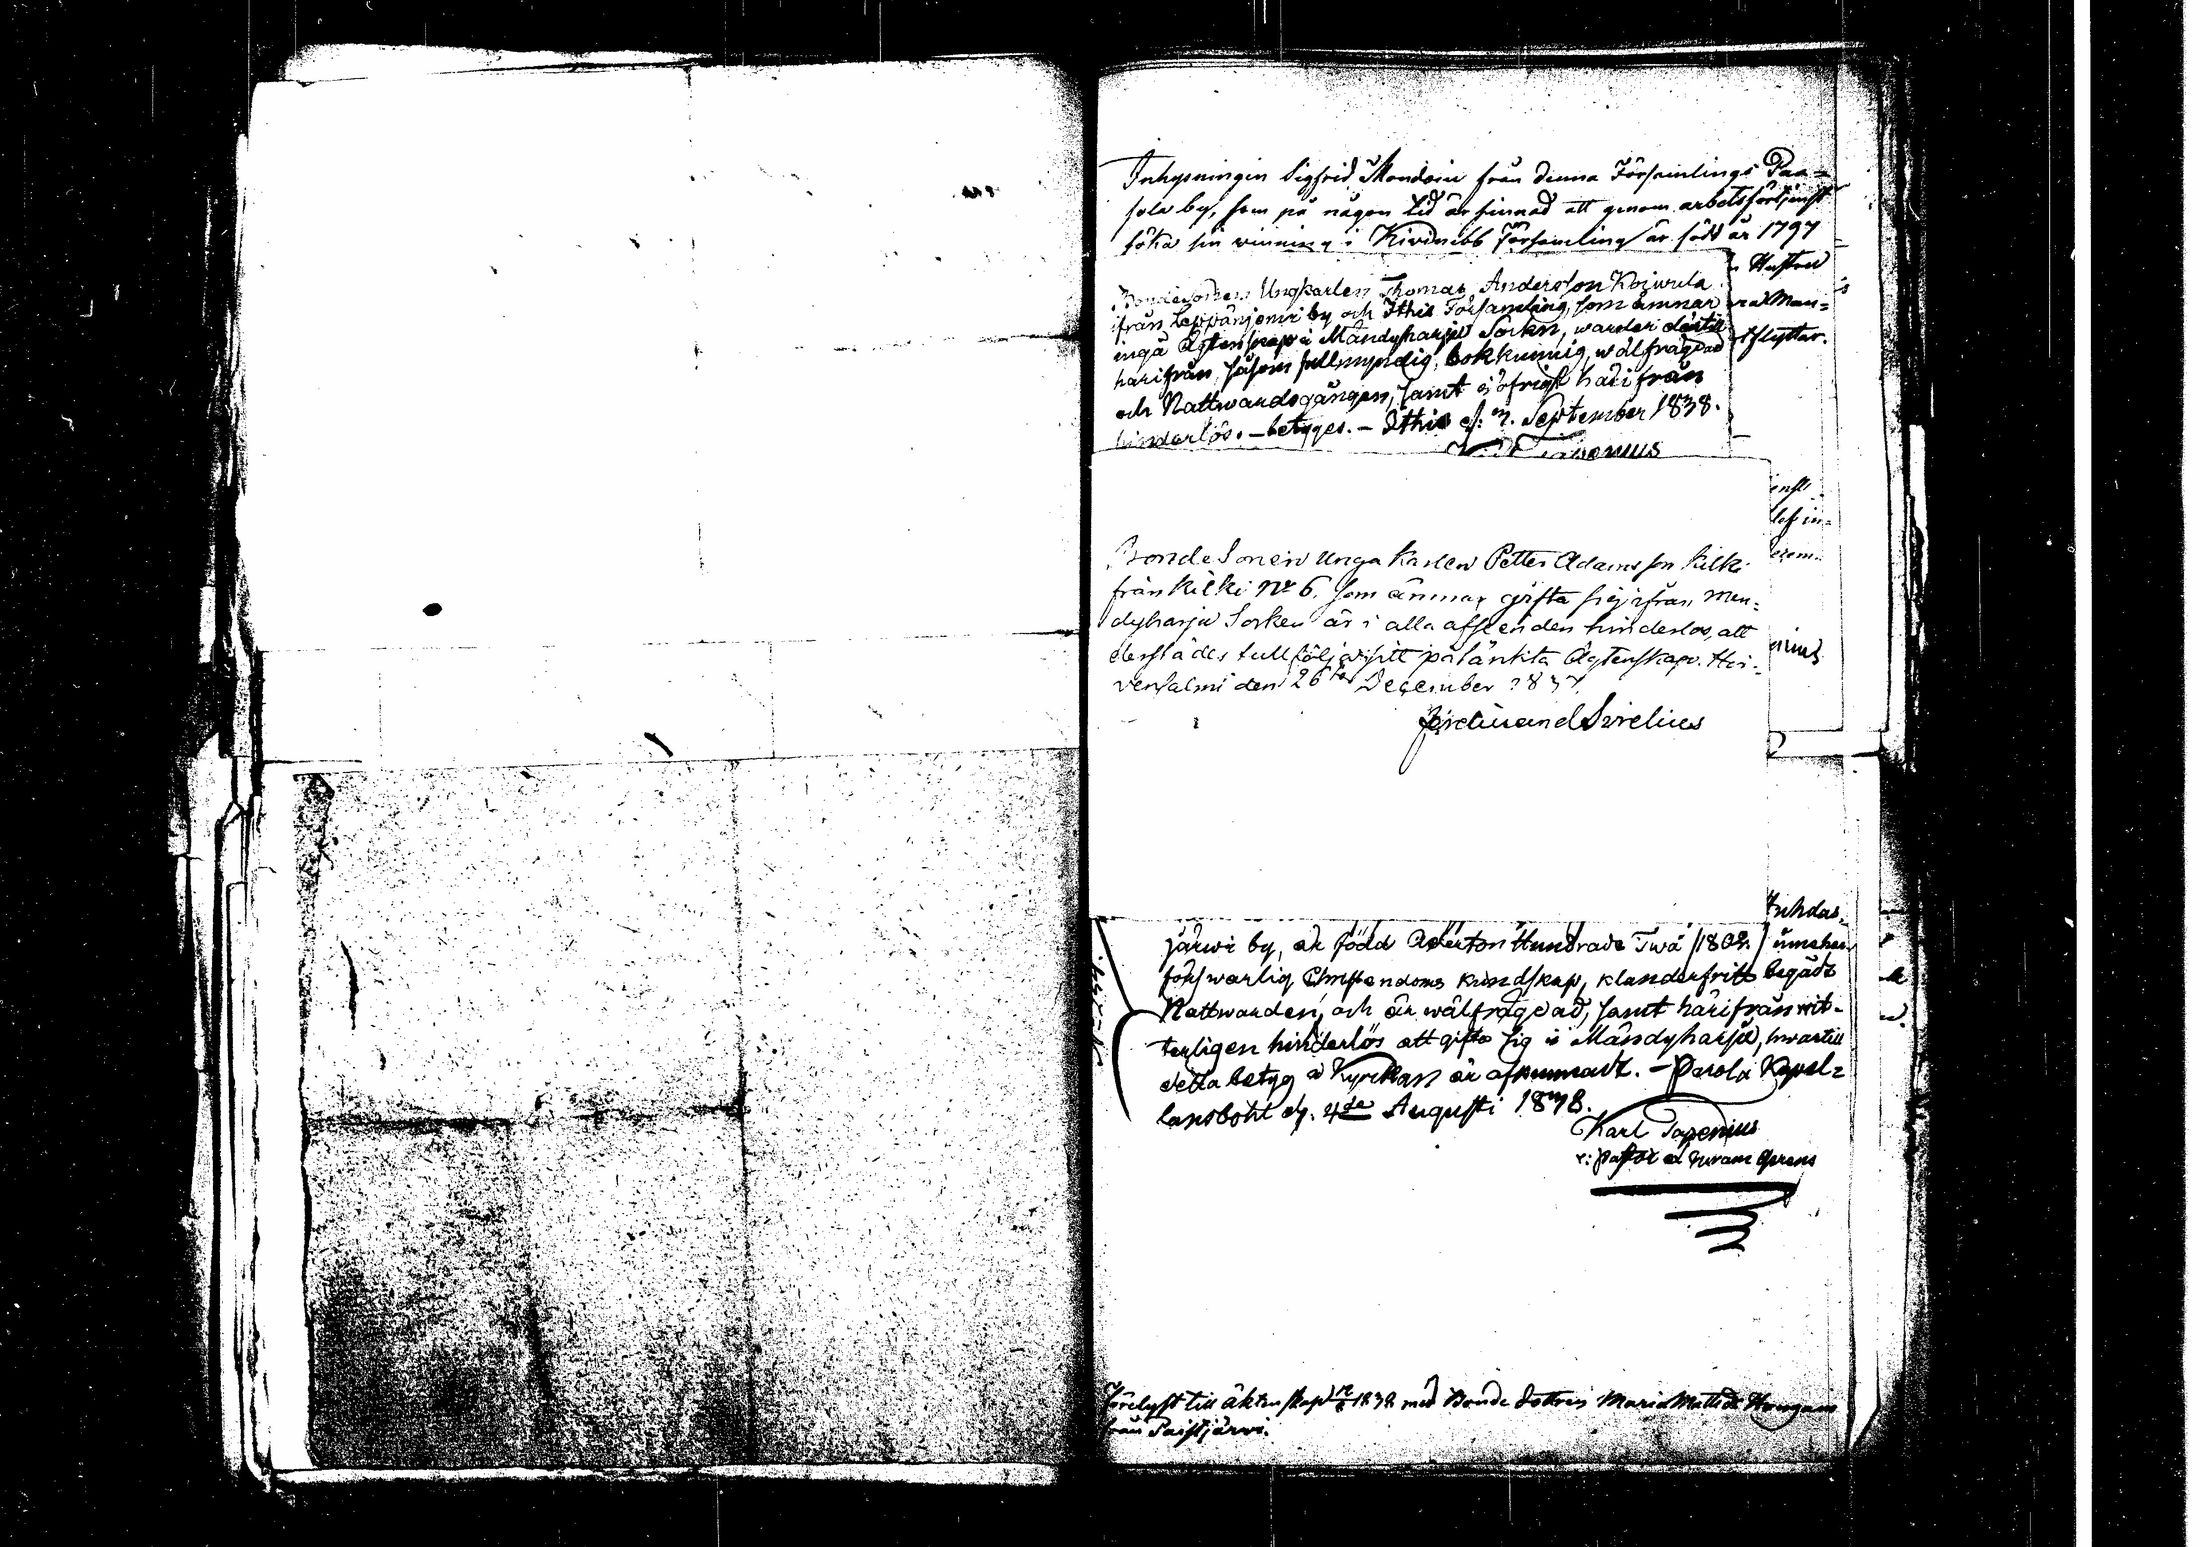 Inhysningen Sigfrid Mondoin från denna Församlings Paa-
sola by, som på någon tid är sinnad att genom arbetsförtjenst
söka sin winning i Kivinibb Församling är född år 1797
Hustru
Bondesonen Ungkarlen Thomas Andersson Koiwula
ifrån Leppäniemi by och Ithis Församling, som ämnar
ingå Ägtenskap i Mändyharju Sockn, warder dertill
härifrån, såsom fullmyndig, bokkunnig, wälfrägdad
flyttar.
och Nattwardsgången, samt ej öfrigt härifrån
hinderlös. - betyges. - Ithis d. 3. September 1838.
BondeSonen Unga Karlen Petter Adamsson Kilki
från Kilki No 6. som ämnar gifta sig ifrån Men-
dyharju Socken är i alla afseenden hinderlös, att
derstädes fullfölja sitt påtänkta Ägtenskap. Hir-
vensalmi den 26te December 1837.
Ferdinand Sirelius
järwi by, är född Aderton Hundrade Twå /1802./ innehar
förswarlig Christendoms kundskap, klanderfritt begått
Nattwarden, och är wälfrägdad, samt härifrån wit-
terligen hinderlös att gifta sig i Mändyharju, hwartill
detta betyg å Kyrckan är afkunnadt. - Jaala Kapel-
lansbohl dg. 4de Augusti 1838.
Karl
v: Pastor
Förelyst till äktenskap 12/8 1838 med Bonde Dottren Maria Matts dr
från Paistjärwi.